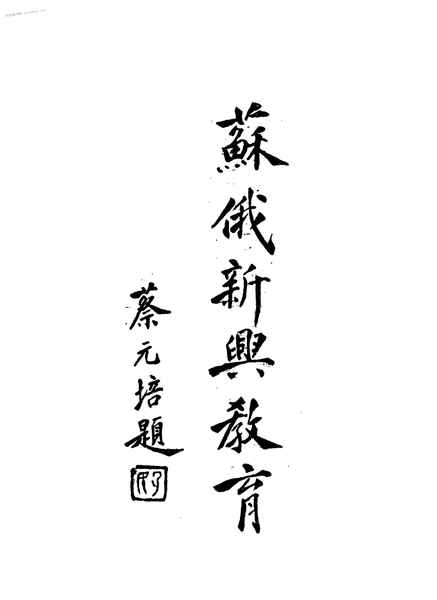 蘇俄新興教育
蔡元培題